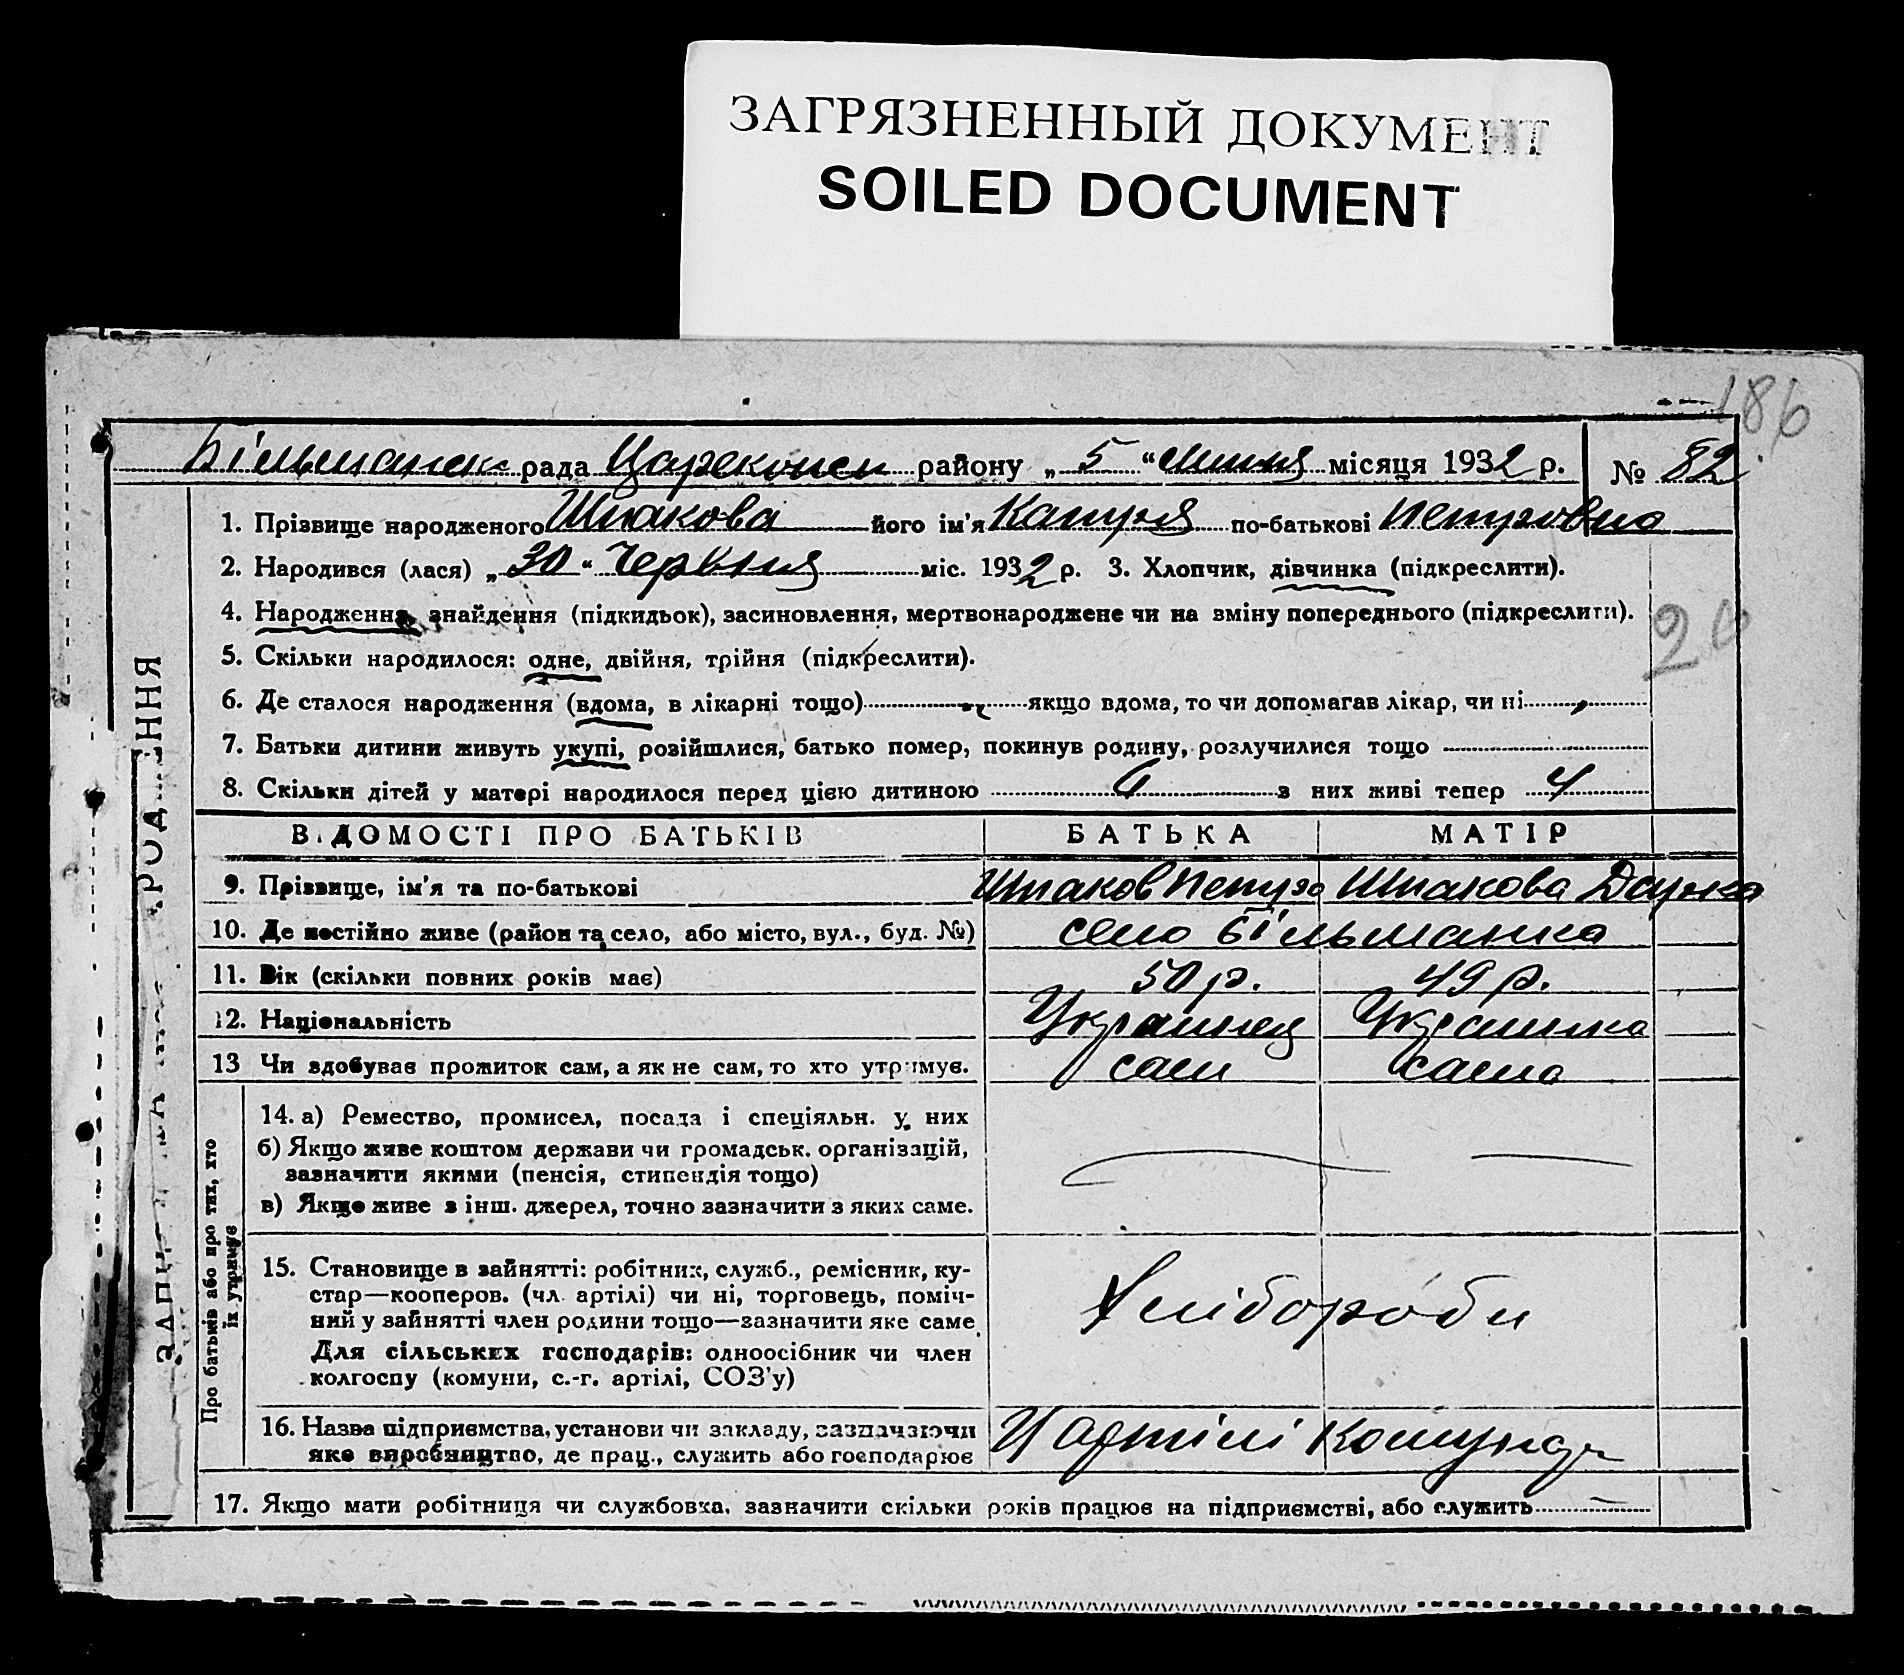 ЗАГРЯЗНЕННЫЙ ДОКУМЕНТ
SOILED DOCUMENT
186
Більманск рада Царекон району „ 5 “ липня місяця 1932 р. № 82
1. Прізвище народженого Шпакова його ім'я Катря по-батькові Петровна
2. Народився (лася) „ 30 “ Червня міс. 1932 р. 3. Хлопчик, дівчинка (підкреслити).
4. Народження, знайдення (підкидьок), засиновлення, мертвонароджене чи на зміну попереднього (підкреслити).
5. Скільки народилося: одне, двійня, трійня (підкреслити).
6. Де сталося народження (вдома, в лікарні тощо) якщо вдома, то чи допомагав лікар, чи ні
7. Батьки дитини живуть укупі, розійшлися, батько помер, покинув родину, розлучилися тощо
8. Скільки дітей у матері народилося перед цією дитиною з них живі тепер 4
ВІДОМОСТІ ПРО БАТЬКІВ БАТЬКА МАТІР
9. Прізвище, ім'я та по-батькові Шпаков Петро Шпакова Дарка
10. Де постійно живе (район та село, або місто, вул., буд. №) село Більманка
11. Вік (скільки повних років має) 50 р. 49 р.
12. Національність Украинец Украинка
13 Чи здобував прожиток сам, а як не сам, то хто утримує. сам сама
14. а) Ремество, промисел, посада і спеціяльн. у них
б) Якщо живе коштом держави чи громадськ. організацій,
зазначити якими (пенсія, стипендія тощо)
в) Якщо живе з інш. джерел, точно зазначити з яких саме.
15. Становище в зайнятті: робітник, служб., ремісник, ку-
стар—кооперов. (чл. артілі) чи ні, торговець, поміч-
ний у зайнятті член родини тощо—зазначити яке саме
Для сільських господарів: одноосібник чи член
колгоспу (комуни, с.-г. артілі, СОЗ'у)
Хлібороби
16. Назва підприємства, установи чи закладу, зазначаючи
яке виробництво, де прац., служить або господарює
артілі
17. Якщо мати робітниця чи службовка, зазначити скільки років працює на підприємстві, або служить
Про батьків або про тих, хто
їх утримує